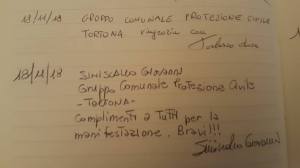 18/11/18 GRUPPO COMUNALE PROTEZIONE CIVILE
TORTONA ringrazia con
18/11/18 SINISCALCO GIOVANNI
Gruppo Comunale Protezione Civile
- TORTONA -
Complimenti a Tutti per la
manifestazione. Bravi!!!
Siniscalco Giovanni